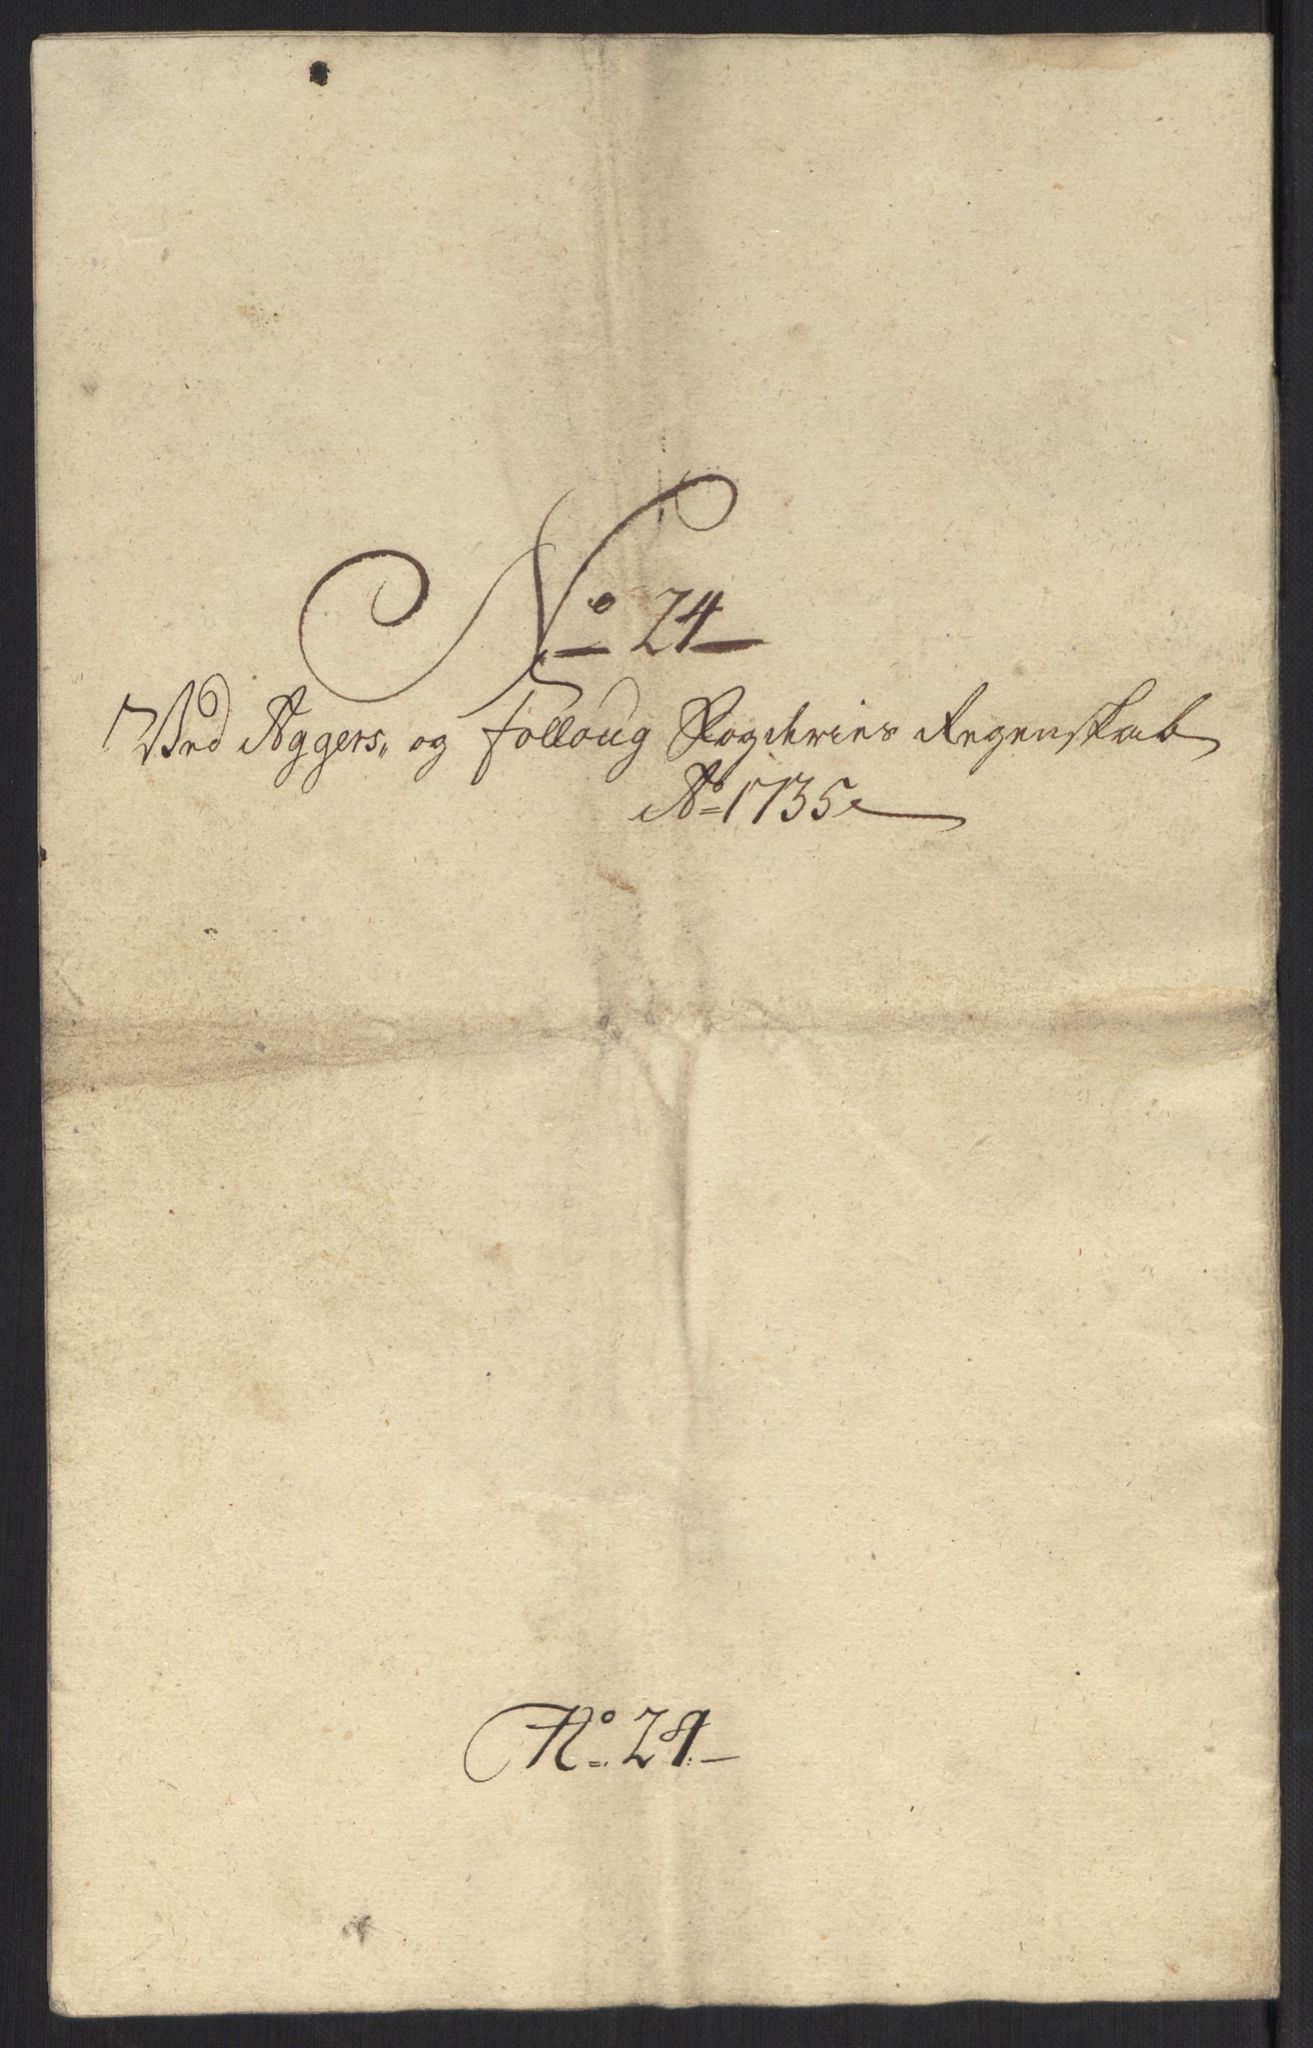 No 24
Ved Aggers, og Folloug Fogderies Regenskab
Ao 1735
No. 24